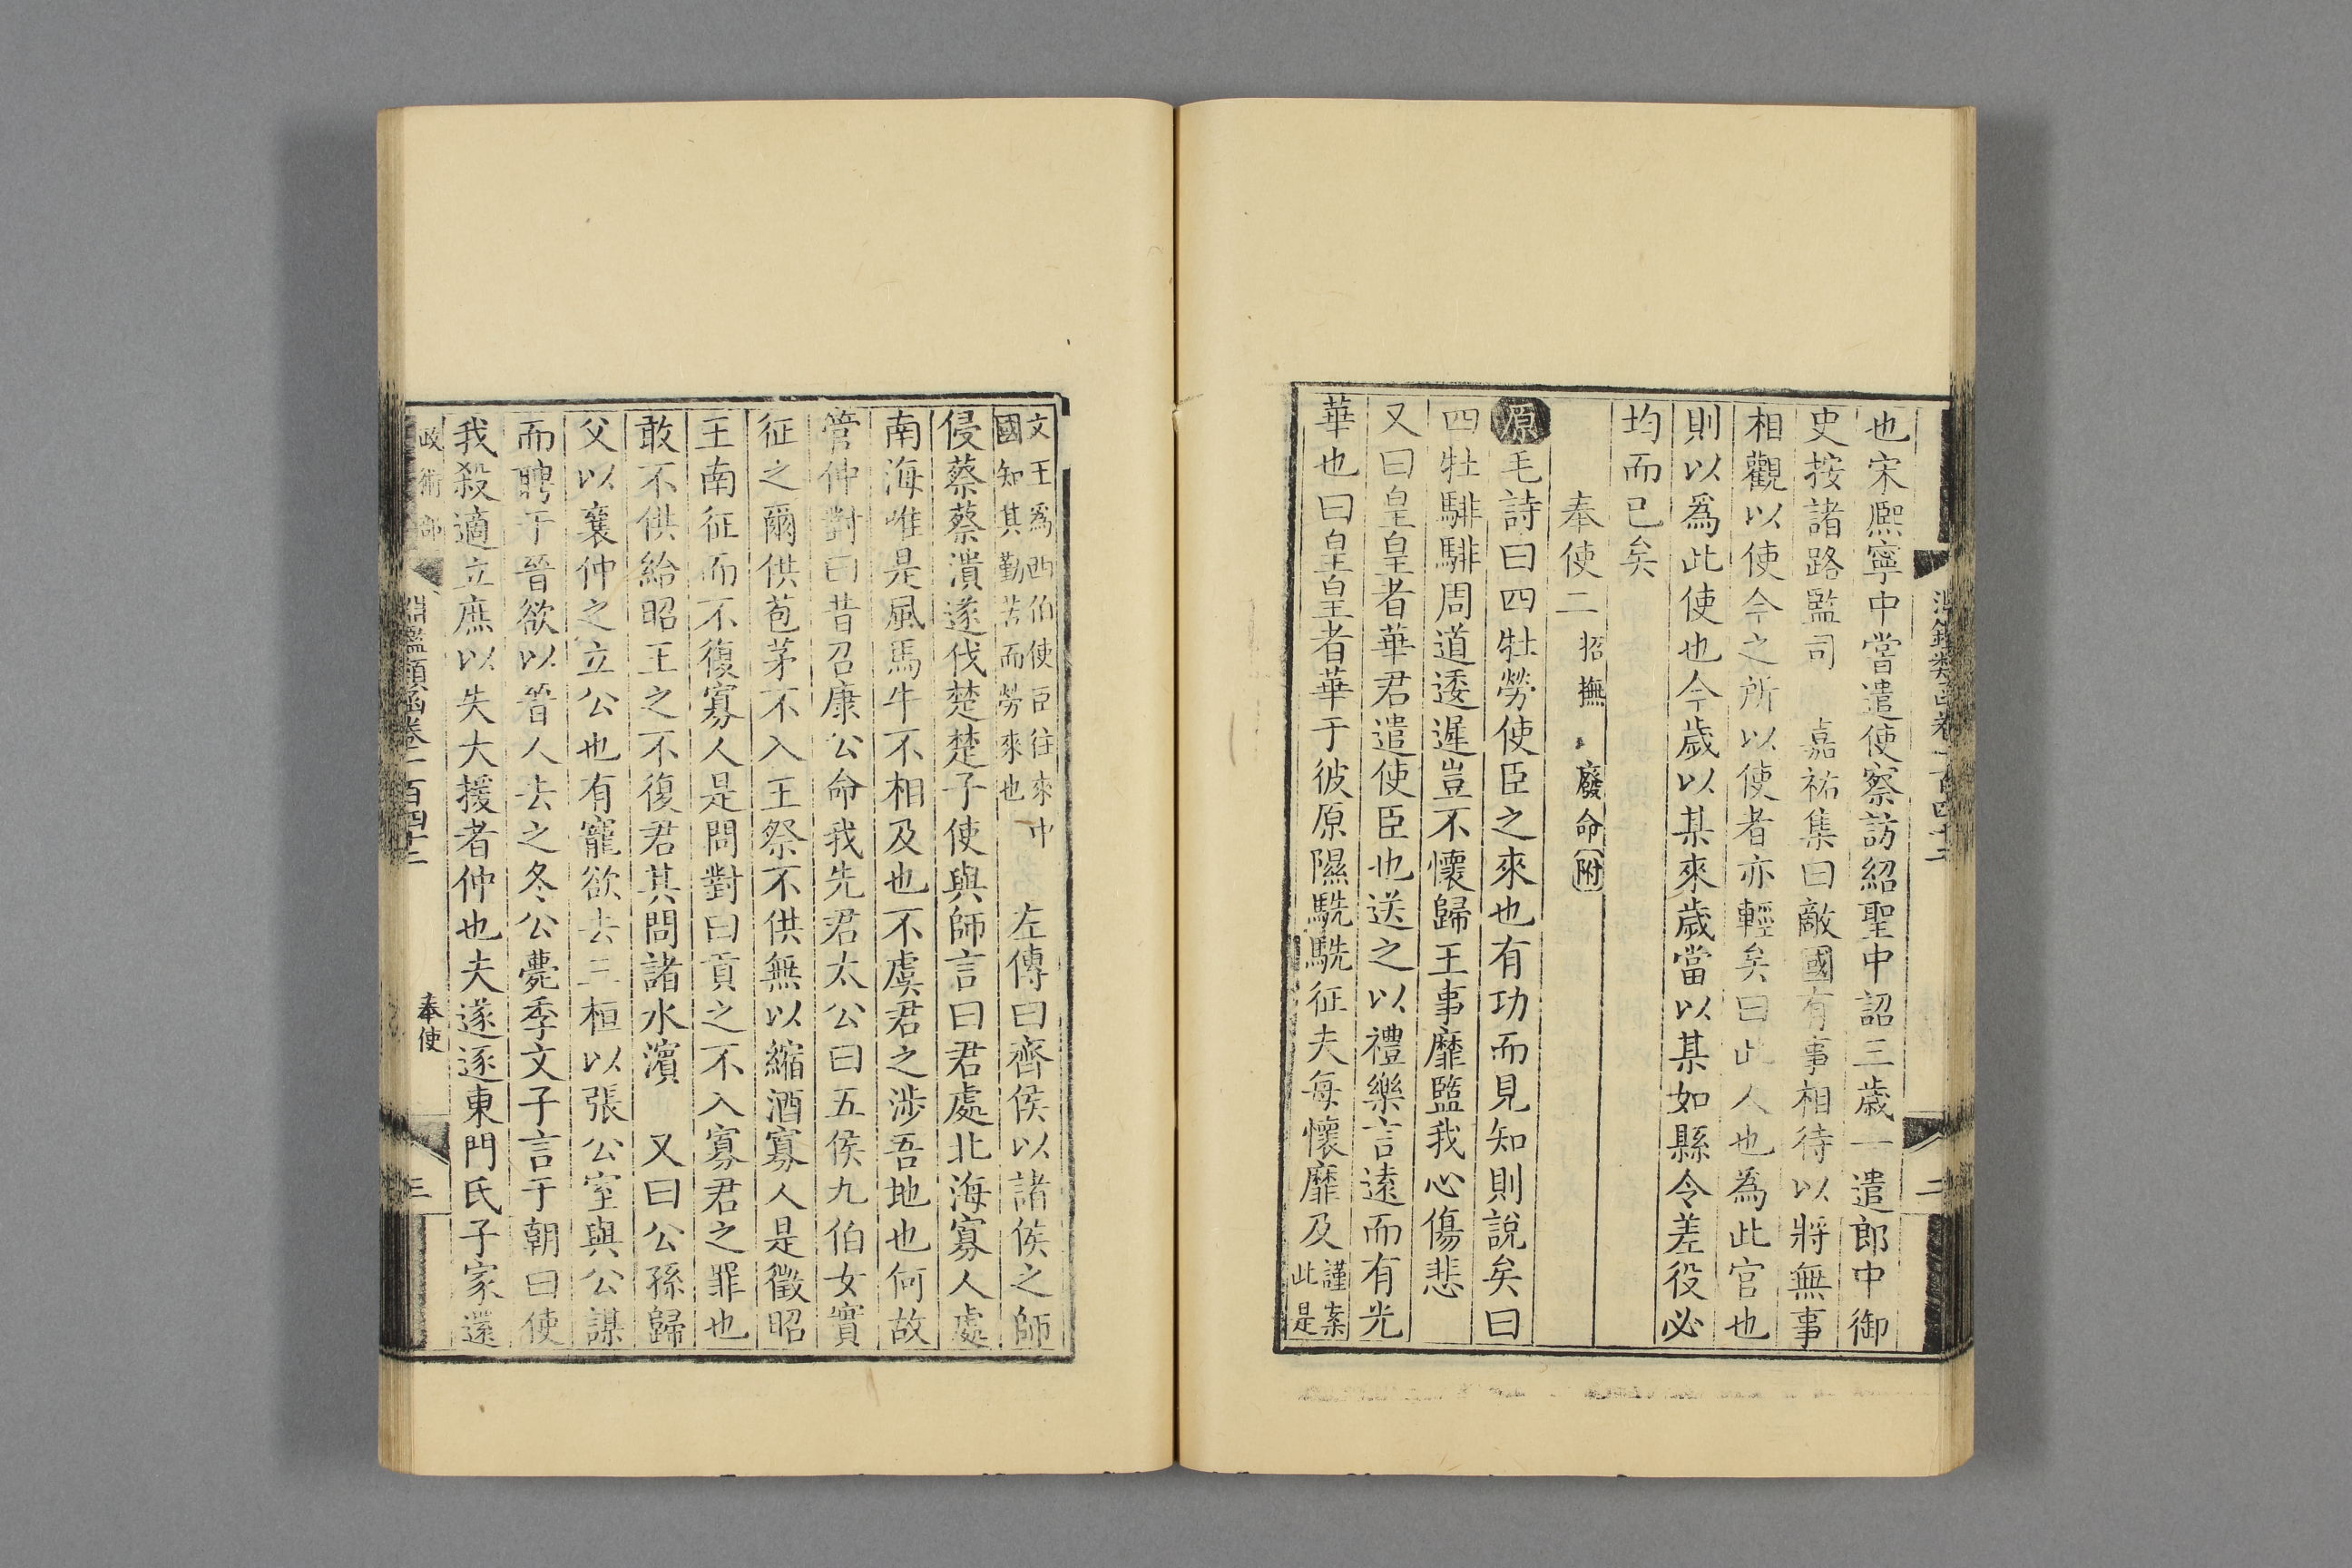 也宋熈寧中嘗遣使察訪紹聖中詔三歲一遣郎中御
史按諸路監司　嘉祐集曰敵國有事相待以將無事
相觀以使今之所以使者亦輕矣曰此人也為此官也
則以爲此使也今歲以某來歲當以某如縣令差役必
均而已矣
奉使二 招撫 廢命附
原毛詩曰四牡勞使臣之來也有功而見知則說矣曰
四牡騑騑周道逶遲豈不懷歸王事靡盬我心傷悲
又曰皇皇者華君遣使臣也送之以禮樂言遠而有光
華也曰皇皇者華于彼原隰駪駪征夫每懷靡及謹案此是
文王爲西伯使臣往來中國知其勤苦而勞來也　左傳曰齊侯以諸侯之師
侵蔡蔡潰遂伐楚楚子使與師言曰君處北海寡人處
南海唯是風馬牛不相及也不虞君之涉吾地也何故
管仲對曰昔召康公命我先君太公曰五侯九伯女實
征之爾供苞茅不入王祭不供無以縮酒寡人是徵昭
王南征而不復寡人是問對曰貢之不入寡君之罪也
敢不供給昭王之不復君其問諸水濱　又曰公孫歸
父以襄仲之立公也有寵欲去三桓以張公室與公謀
而聘于晉欲以晉人去之冬公薨季文子言于朝曰使
我殺適立庶以失大援者仲也夫遂逐東門氏子家還
政術部 淵鑑類函卷一百四十二 奉使 三